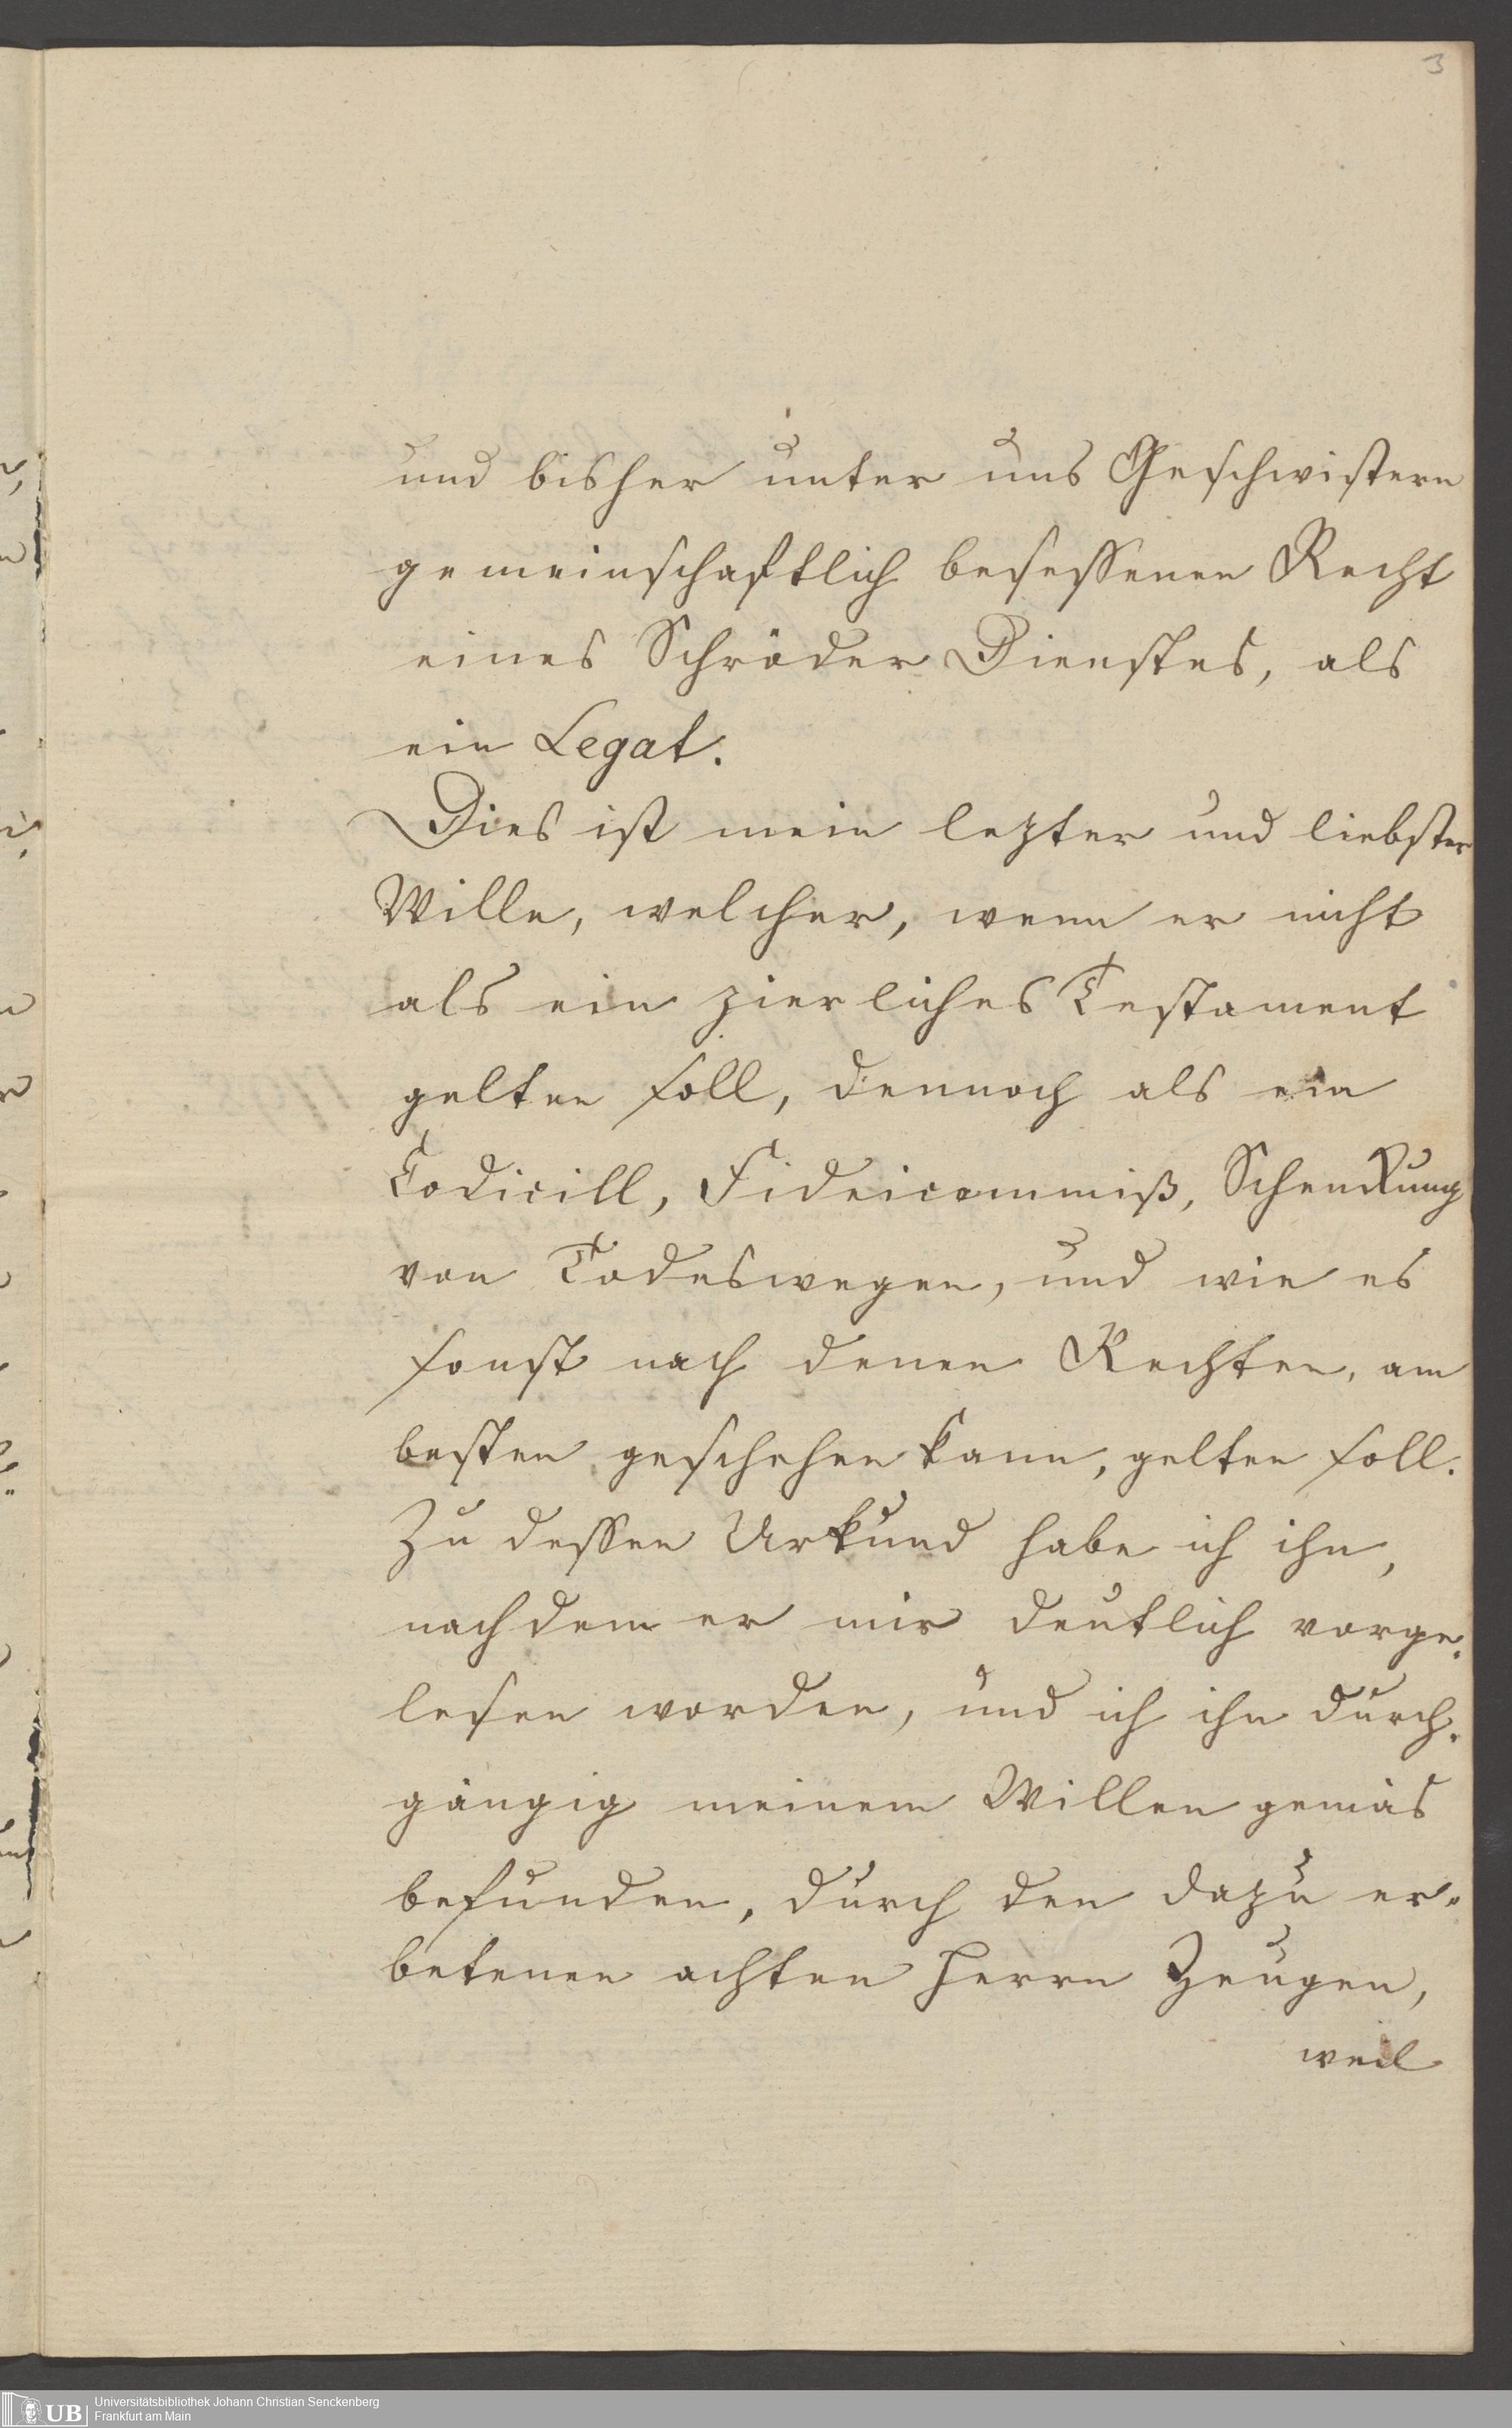 3
und bisher unter uns Geschwistern
gemeinschaftlich besessenen Recht
eines Schröder Dienstes, als
ein Legat.
Dies ist mein lezter und liebster
Wille, welcher, wenn er nicht
als ein zierliches Testament
gelten soll, dennoch als ein
Codicill, Fideicommiß, Schenkung
von Todeswegen, und wie es
sonst nach denen Rechten, am
besten geschehen kann, gelten soll.
Zu dessen Urkund habe ich ihn,
nachdem er mir deutlich vorge-
lesen worden, und ich ihn durch-
gängig meinem Willen gemäs
befunden, durch den dazu er-
betenen achten Herrn Zeugen,
weil
UB
Universitätsbibliothek Johann Christian Senckenberg
Frankfurt am Main